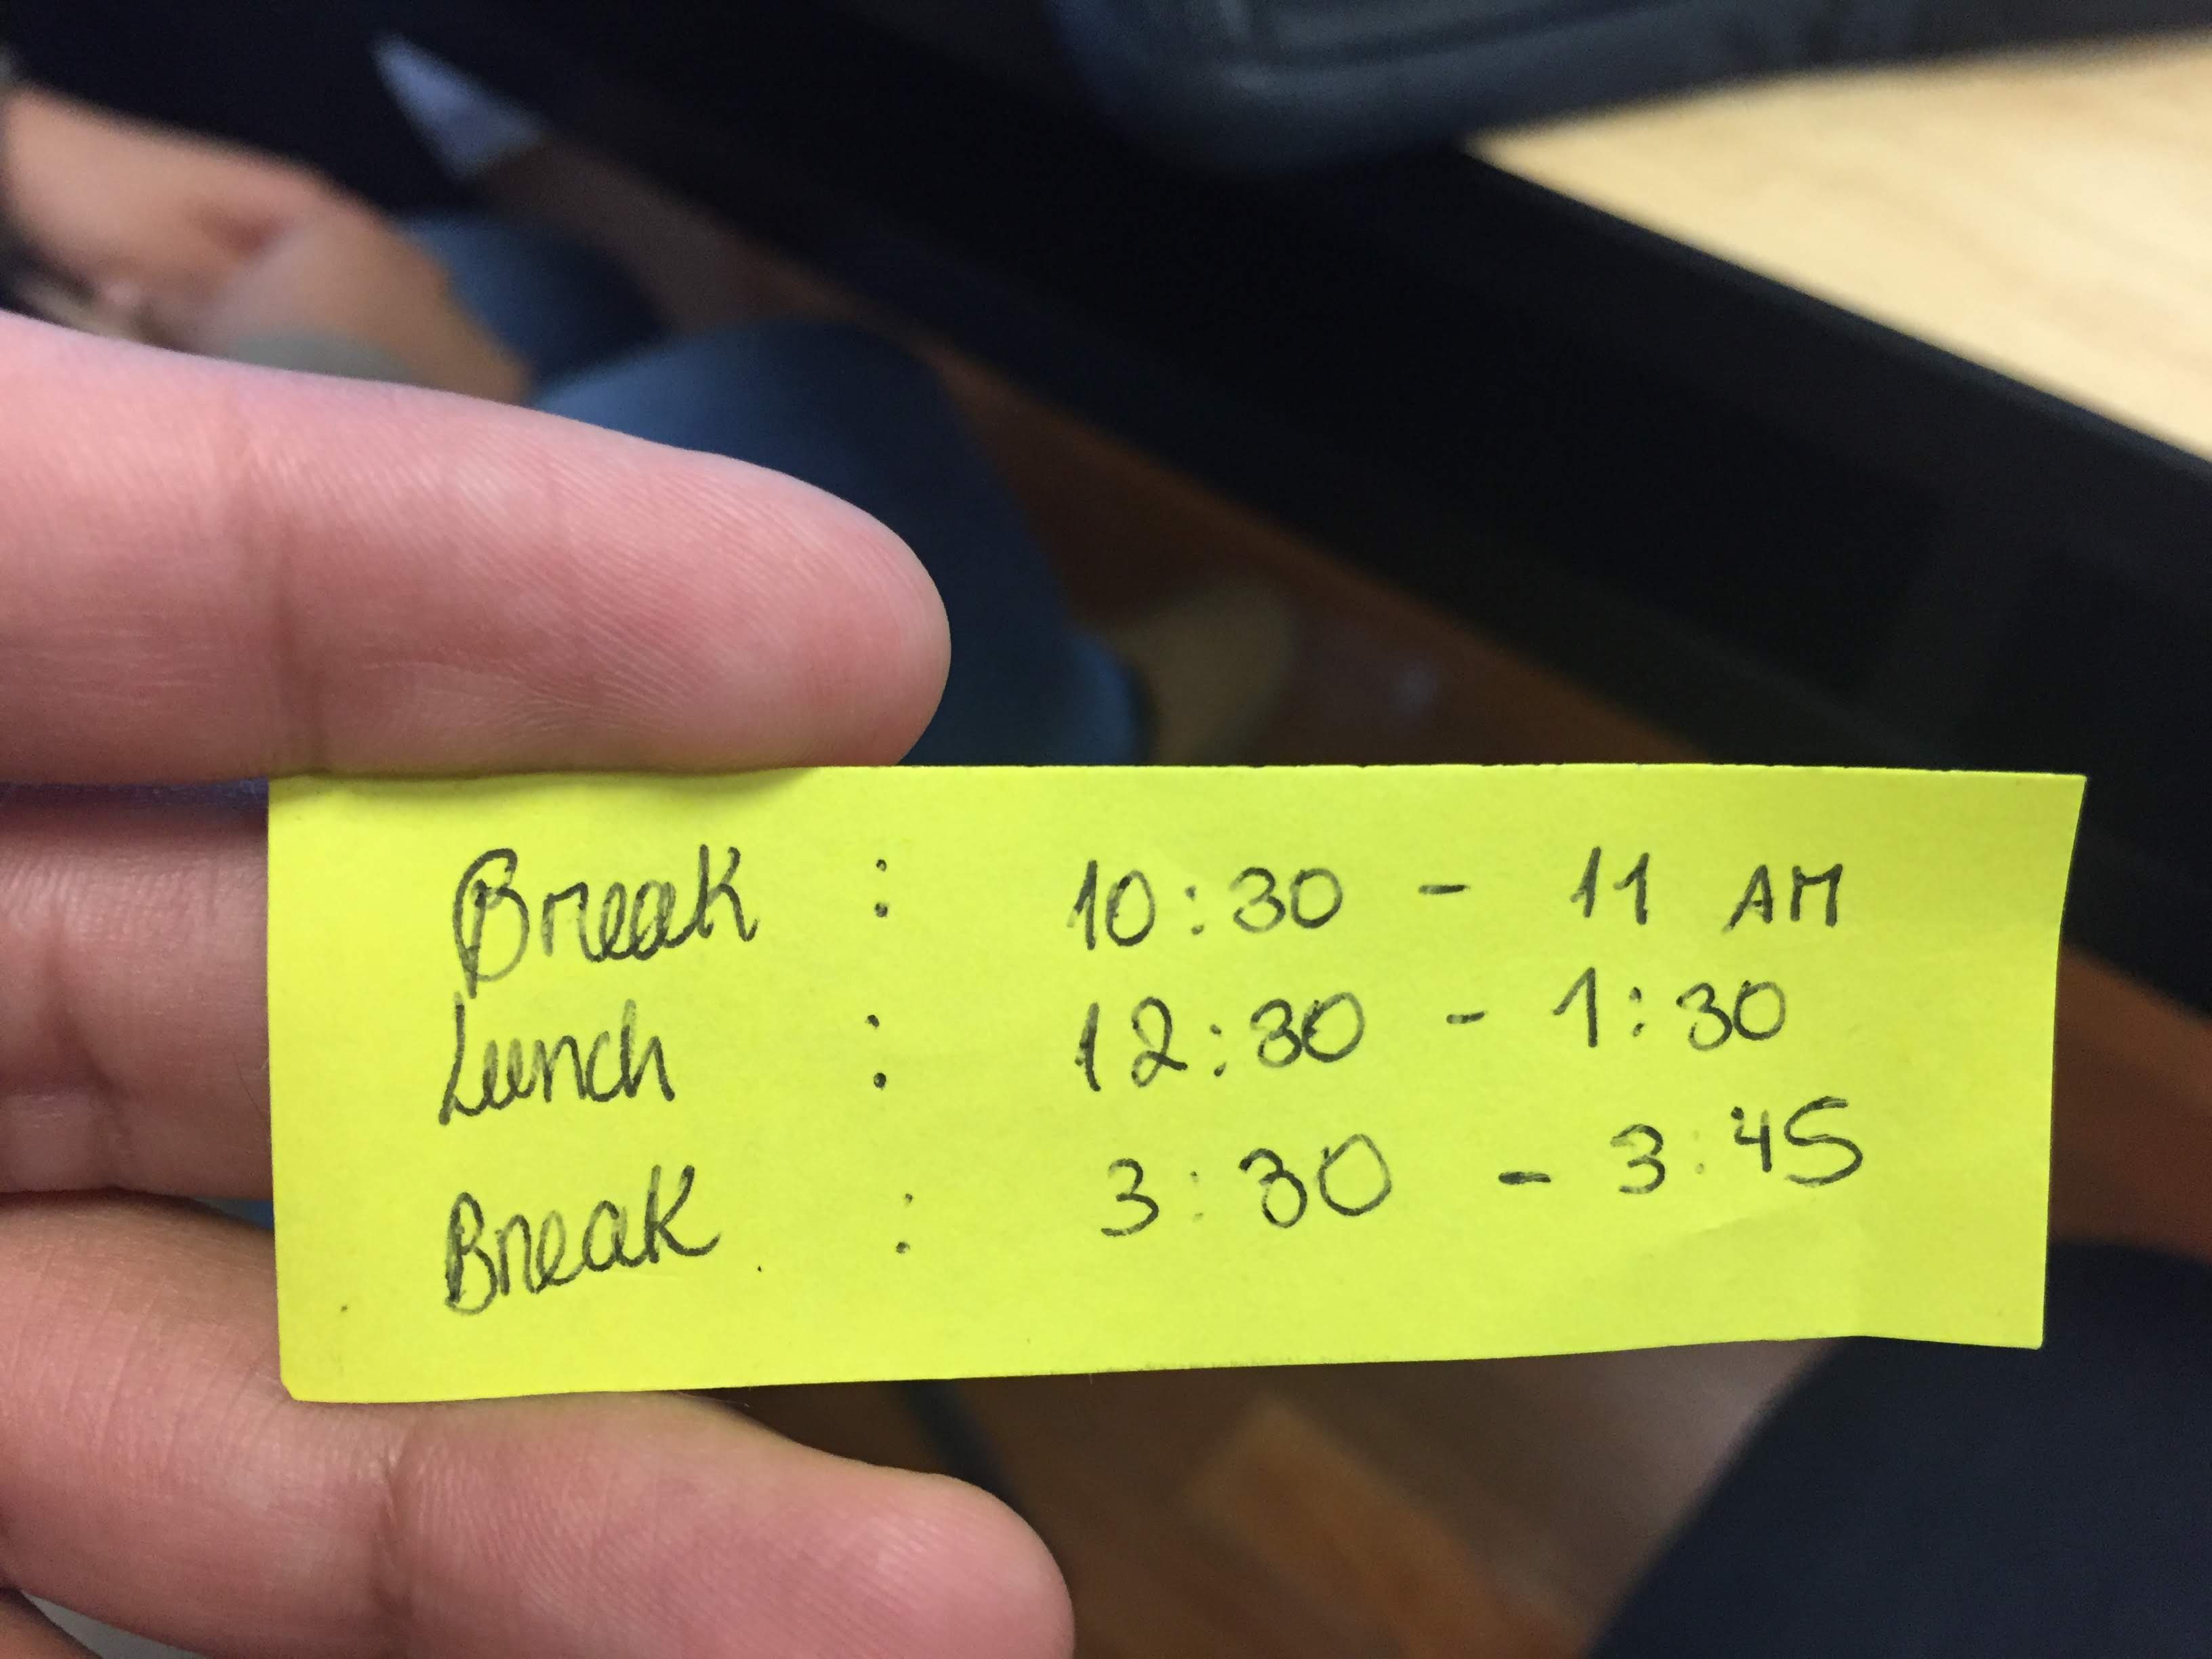 Break : 10:30 - 11 AM
Lunch : 12:30 - 1:30
Break : 3:30 - 3:45